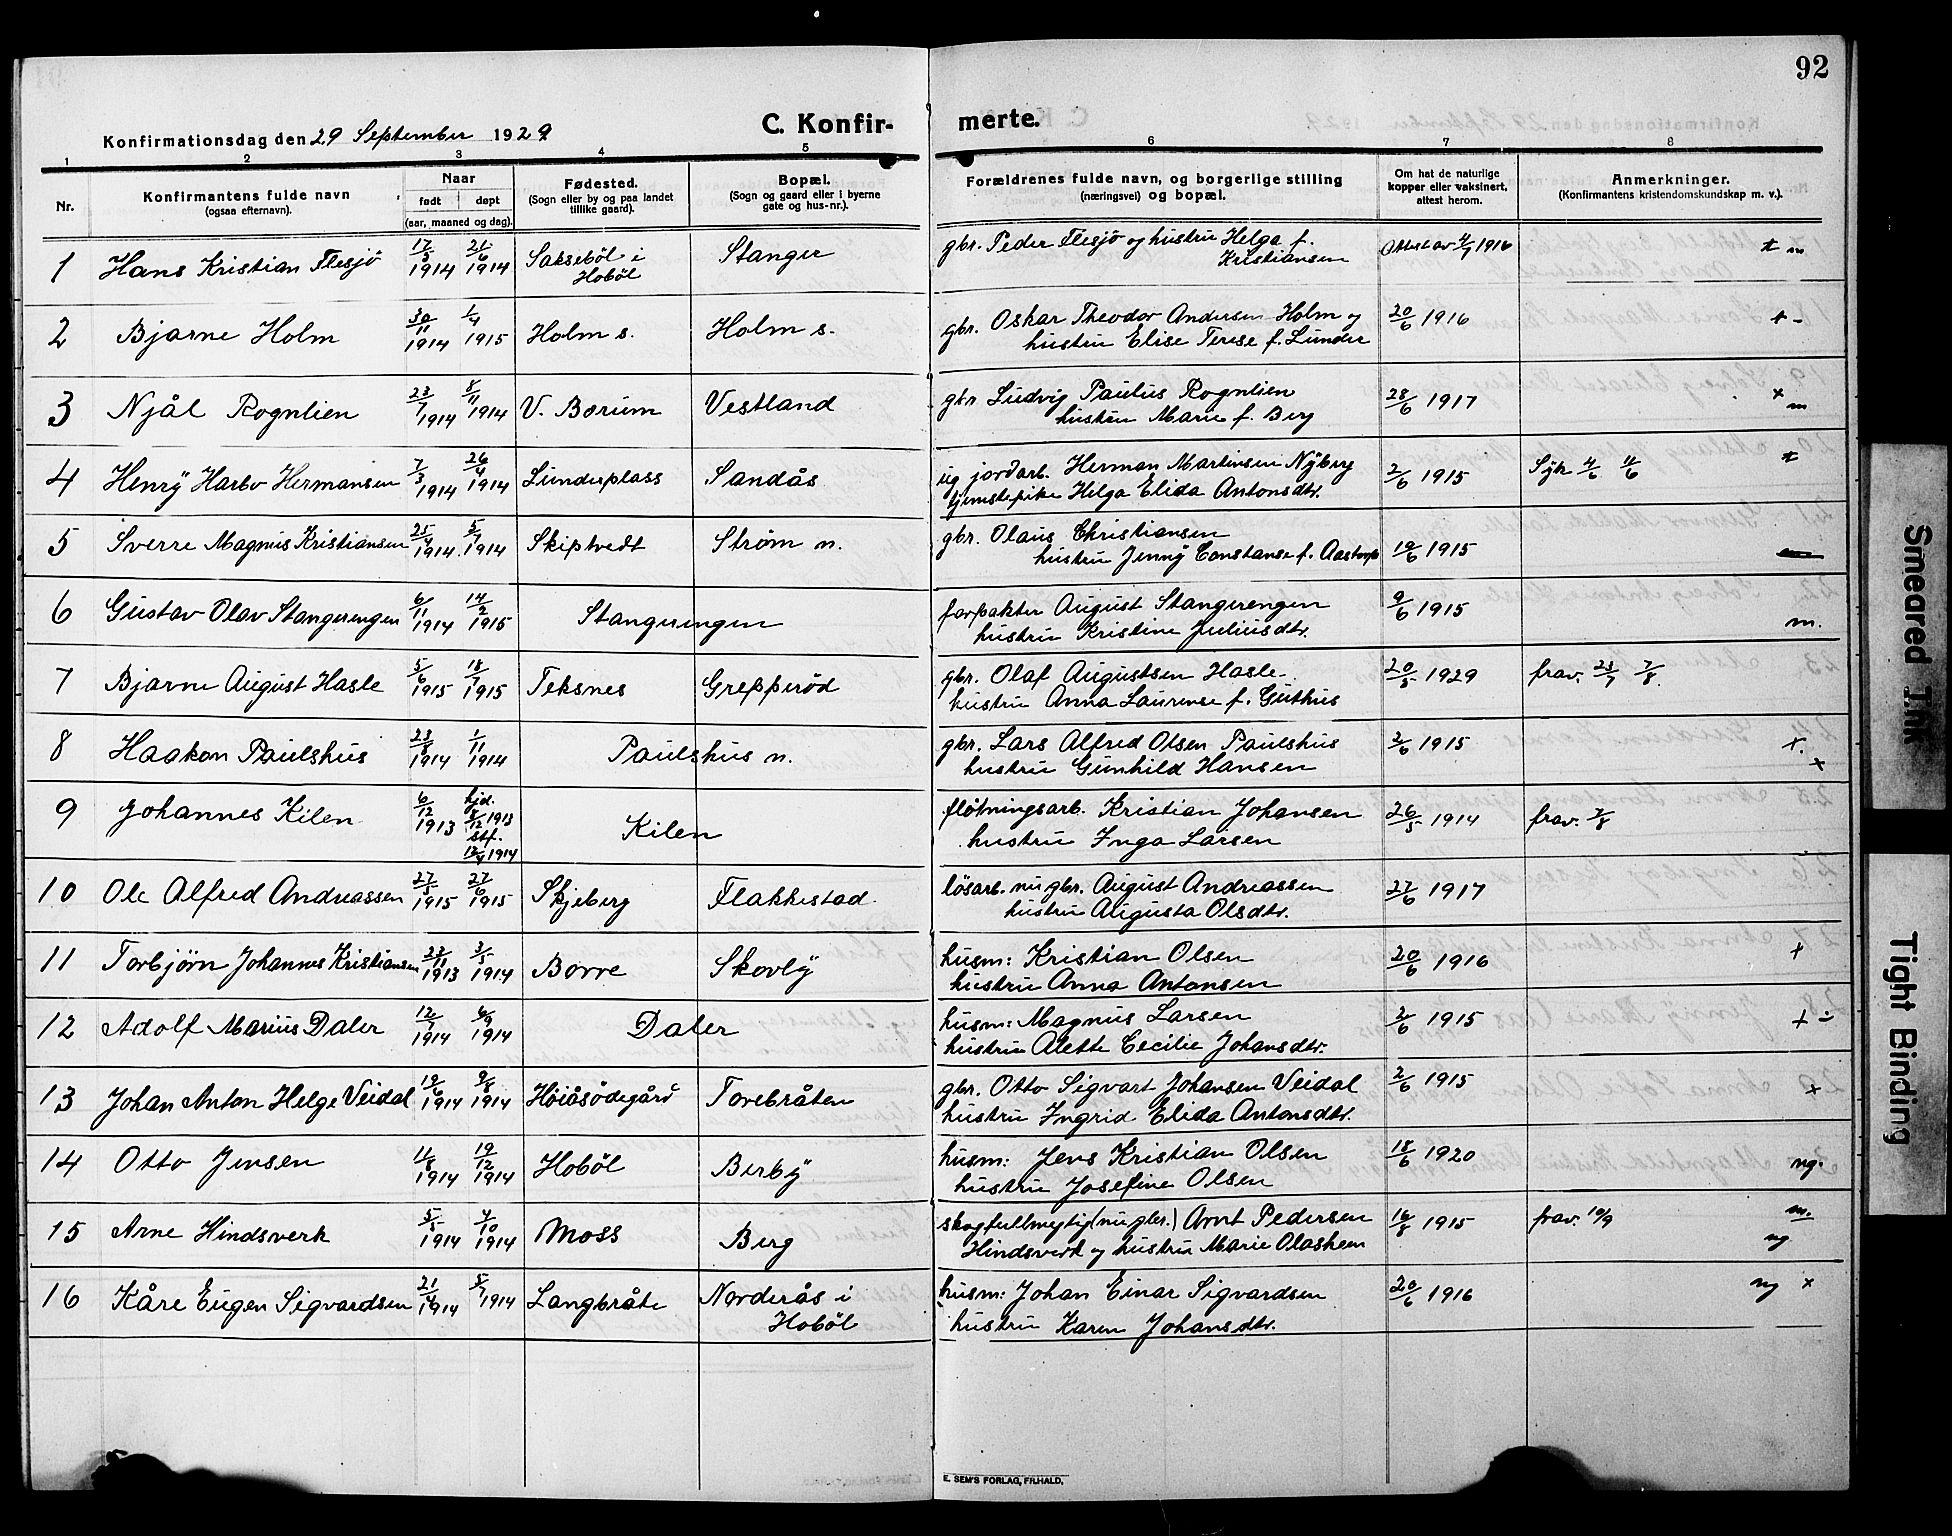 92
C. Konfirmerte.
Konfirmationsdag den 29 September 1929
1 2 3 4 5 6 7 8
Nr.
Konfirmantens fulde navn
(ogsaa efternavn).
Naar
født døpt
(aar, maaned og dag).
Fødested.
(Sogn eller by og paa landet
tillike gaard).
Bopæl.
(Sogn og gaard eller i byerne
gate og hus-nr.).
Forældrenes fulde navn, og borgerlige stilling
(næringsvei) og bopæl.
Om hat de naturlige
kopper eller vaksinert,
attest herom.
Anmerkninger.
(Konfirmantens kristendomskundskap m. v.).
1 Hans Kristian Flesjø 17/5 1914 21/6 1914 Saksebøl i Hobøl Stanger gbr. Peder Flesjø og hustru Helga f. Kristiansen Attest av 4/7 1916 t m
2 Bjarne Holm 30/11 1914 1/4 1915 Holm s. Holm s. gbr. Oskar Theodor Andersen Holm og
hustru Elise Terese f. Lunder 20/6 1916 + -
3 Njål Rognlien 23/7 1914 8/11 1914 V. Borum Vestland gbr Ludvig Paulus Rognlien
hustru Marie f. Berg 28/6 1917 x m
4 Henrÿ Harbo Hermansen 7/3 1914 26/4 1914 Lunderplass Sandås ug jordarb. Herman Martinsen Nÿberg
tjenestepike Helga Elida Antonsdtr. 2/6 1915 Sÿk 4/6 11/6 t
5 Sverre Magnus Kristiansen 25/4 1914. 5/7 1914 Skiptvedt Strøm n. gbr. Olaus Christiansen
hustru Jennÿ Constanse f. Aastorp 19/6 1915
6 Gustav Olav Stangerengen 6/11 1914 14/2 1915 Stangerengen forpakter August Stangerengen
hustru Kristine Juliusdtr. 9/6 1915 m.
7 Bjarne August Hasle 5/6 1915 18/7 1915 Teksnes Grepperød gbr. Olaf Augustsen Hasle
hustru Anna Laurense f. Guthus 20/5 1929 frav. 23/7 7/8.
8 Haakon Paulshus 23/8 1914 1/11 1914 Paulshus n. gbr. Lars Alfred Olsen Paulshus
hustru Gunhild Hansen 2/6 1915 +. x
9 Johannes Kilen 6/12 1913 hjd. 8/12 1913 stf. 13/4 1914 Kilen fløtningsarb. Kristian Johansen
hustru Inga Larsen 26/5 1914 frav. 7/8
10 Ole Alfred Andreassen 27/5 1915 27/6 1915 Skjeberg Flakkestad løsarb. nu gbr. August Andreassen
hustru Augusta Olsdtr. 27/6 1917
11 Torbjørn Johannes Kristiansen 22/11 1913 3/5 1914 Borre Skovlÿ husm: Kristian Olsen
hustru Anna Antonsen 20/6 1916 +
12 Adolf Marius Daler 12/7 1914 6/9 1914 Daler husm: Magnus Larsen
hustru Alette Cecilie Johansdtr. 2/6 1915 + -
13 Johan Anton Helge Veidal 19/6 1914 9/8 1914 Høiåsødegård Torebråten gbr. Otto Sigvart Johansen Veidal
hustru Ingrid Elida Antonsdtr. 2/6 1915 x
14 Otto Jensen 11/8 1914 19/12 1914 Hobøl Berbÿ husm: Jens Kristian Olsen
hustru Josefine Olsen 18/6 1920 ng.
15 Arne Hindsverk 5/5 1914 4/10 1914 Moss Berg skogfullmegtig (nu gbr.) Arnt Pedersen
Hindsverk og hustru Marie Olashem 16/8 1915 frav. 10/9 m. ng
16 Kåre Eugen Sigvardsen 21/4 1914 5/7 1914 Langbråte Norderås i Hobøl husm: Johan Einar Sigvardsen
hustru Karen Johansdtr. 20/6 1916 ng x
E. SEM'S FORLAG, FR.HALD.
Smeared Ink
Tight Binding